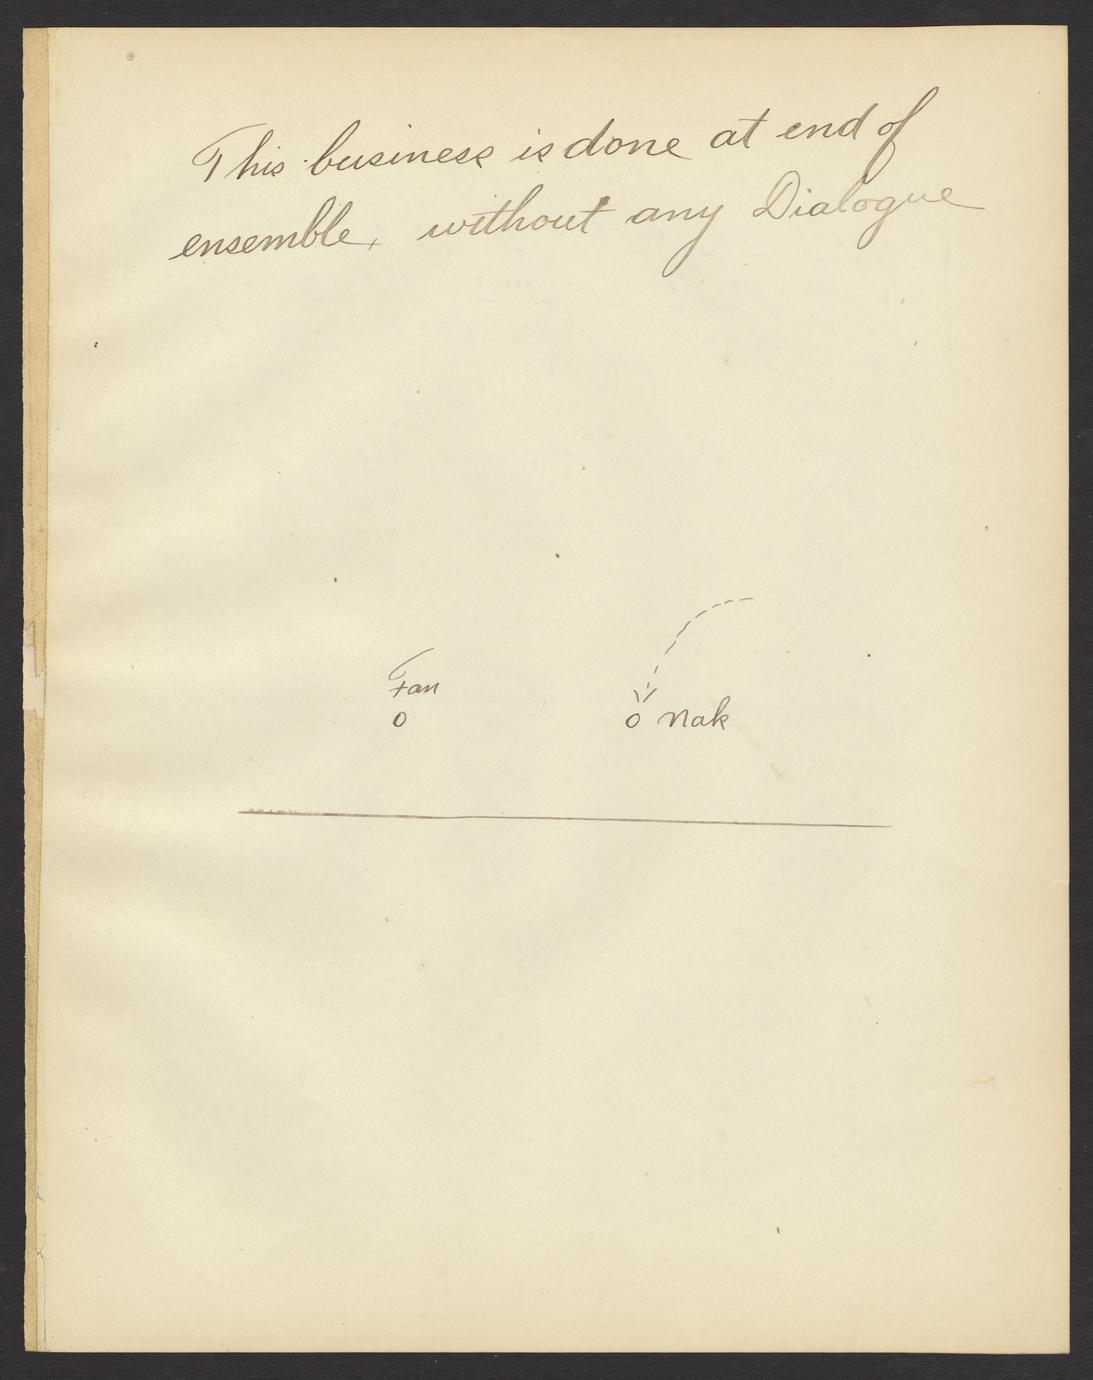 This business is done at end of
ensemble, without any Dialogue
Fan
o
o Nak